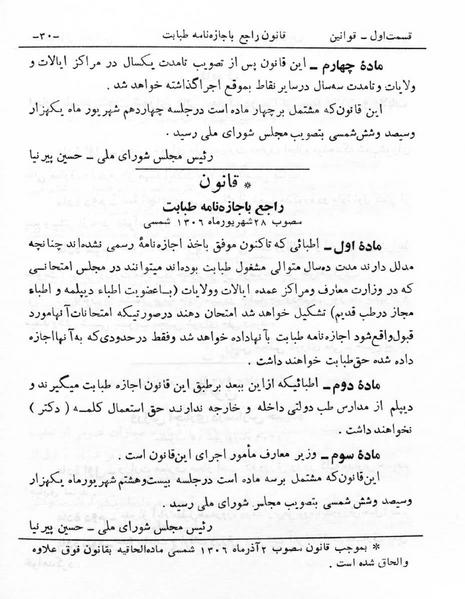 قسمت اول – قوانین    قانون راجع باجازه‌نامه طبابت    –۳۰–
مادهٔ چهارم – این قانون پس از تصویب تامدت یکسال در مراکز ایالات و
ولایات و تامدت سه‌سال در سایر نقاط بموقع اجراگذاشته خواهد شد .
این قانون‌که مشتمل بر چهار ماده است در جلسه چهاردهم شهریور ماه یکهزار
وسیصد وشش‌شمسی بتصویب مجلس شورای ملی رسید .
رئیس مجلس شورای ملی – حسین پیرنیا
* قانون
راجع باجازه‌نامه طبابت
مصوب ۲۸ شهریورماه ۱۳۰۶ شمسی
مادهٔ اول – اطبائی که تاکنون موفق باخذ اجازه‌نامهٔ رسمی نشده‌اند چنانچه
مدلل دارند مدت ده‌سال متوالی مشغول طبابت بوده‌اند میتوانند در مجلس امتحانـی
که در وزارت معارف ومراکز عمده ایالات وولایات (باـعضویت اطباء دیپلمه و اطباء
مجاز درطب قدیم) تشکیل خواهد شد امتحان دهند درصورتیکه امتحانات آنهامورد
قبول‌واقع‌شود اجازه‌نامه طبابت بآنهاداده خواهد شد وفقط درحدودی‌که به‌آنهااجازه
داده شده حق‌طبابت خواهند داشت .
مادهٔ دوم – اطبائیکه ازاین ببعد برطبق این قانون اجازه طبابت میگیرند و
دیپلم از مدارس طب دولتی داخله و خارجه ندارند حق استعمال کلمـه ( دکتر )
نخواهند داشت .
مادهٔ سوم – وزیر معارف مأمور اجرای این‌قانون است .
این‌قانون‌که مشتمل برسه ماده است درجلسه بیست‌وهشتم شهریورماه یکهزار
وسیصد وشش شمسی بتصویب مجلس شورای ملی رسید .
رئیس مجلس شورای ملی – حسین پیرنیا
* بموجب قانون مصوب ۲ آذرماه ۱۳۰۶ شمسی ماده‌الحاقیه بقانون فوق علاوه
والحاق شده است .